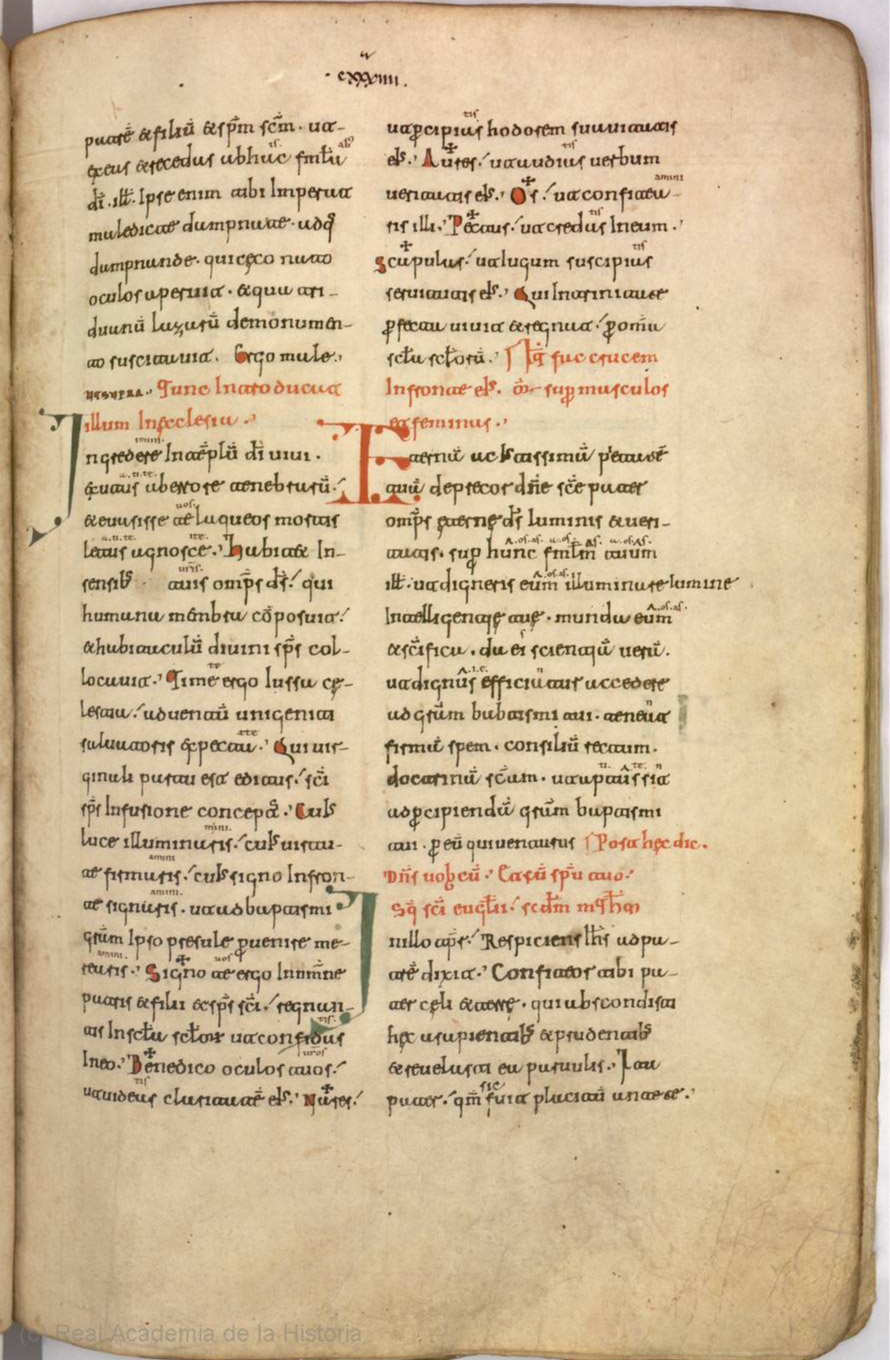 cxxxiiii.
patrē & filiū & spm̄ scm̄. ut
exeas & recedas ab hūc fmłū
dī. ill. Ipse enim tibi Imperat
maledicte dampnate. atq̨
dampnande. qui cęco nato
oculos aperuit. & quatri-
duanū lazarū demonumen-
to suscitauit. Ergo male.
UT SUPRA. Tunc Introducat
illum Inęcclesia.
Ingredere Intēplū dī uiui.
exutus aberrore tenebrarū.
& euasisse te laqueos mortis
letus agnosce. Habitet In-
sensib; tuis omps ds̄. qui
humana mēnbra cōposuit.
& habitaculū diuini sps̄ col-
locauit. Time ergo Iussa cę-
lestia. aduentū unigeniti
saluatoris expecta. Qui uir-
ginali partu est editus. sc̄i
sps̄ Infusione concept᷒. Cuis
luce illuminaris. cuis uirtu-
te firmaris. cuis signo Infron-
te signaris. ut ad baptismi
grām Ipso presule ꝑuenire me-
rearis. Signo te ergo Innmn̄e
patris & filii & sps̄ sc̄i. regnan-
tis Inscła scłor. ut confidas
Ineo. Benedico oculos tuos.
ut uideas claritatē eis. Nares.
ut ꝑcipias hodorem suauitatis
eis. Aures. ut audias uerbum
ueritatis eis. Os. ut confitea-
ris illi. Pectus. ut credas Ineum.
Scapulas. ut iugum suscipias
seruitutis eis. Qui Intrinitate
ꝑfecta uiuit & regnat. ꝑ omīa
scła scłorū. Hic fac crucem
Infronte eis. sup musculos
et feminas.
Eternā ac Iustissimā pietatē
tuā deprecor dn̄e sc̄e pater
omps̄ ęterne ds̄ luminis & ueri-
tatis. sup hunc fmłm tuum
ill. ut digneris eūm illuminare lumine
Intelligentię tuę. munda eūm
& sc̄ifica. da ei scientiā uerā.
ut dignus efficiatur accedere
ad grām babtismi tui. teneat
firmā spem. consiliū rectum.
doctrinā sc̄am. ut aptus sit
ad ꝑcipiendā grām baptismi
tui. ꝑ eū qui uenturus Post hęc dic.
Dn̄s uobcū. Et cū spu tuo.
Sq̄ sc̄i euglii. scdm̄ mathm̄
Inillo tēpr. Respiciens Ihs adpa-
trē dixit. Confiteor tibi pa-
ter cęli & terrę. qui abscondisti
hęc asapientib; & prudentib;
& reuelasti ea paruulis. Ita
pater. qm̄ sic fuit placitū ante te.
(c) Real Academia de la Historia